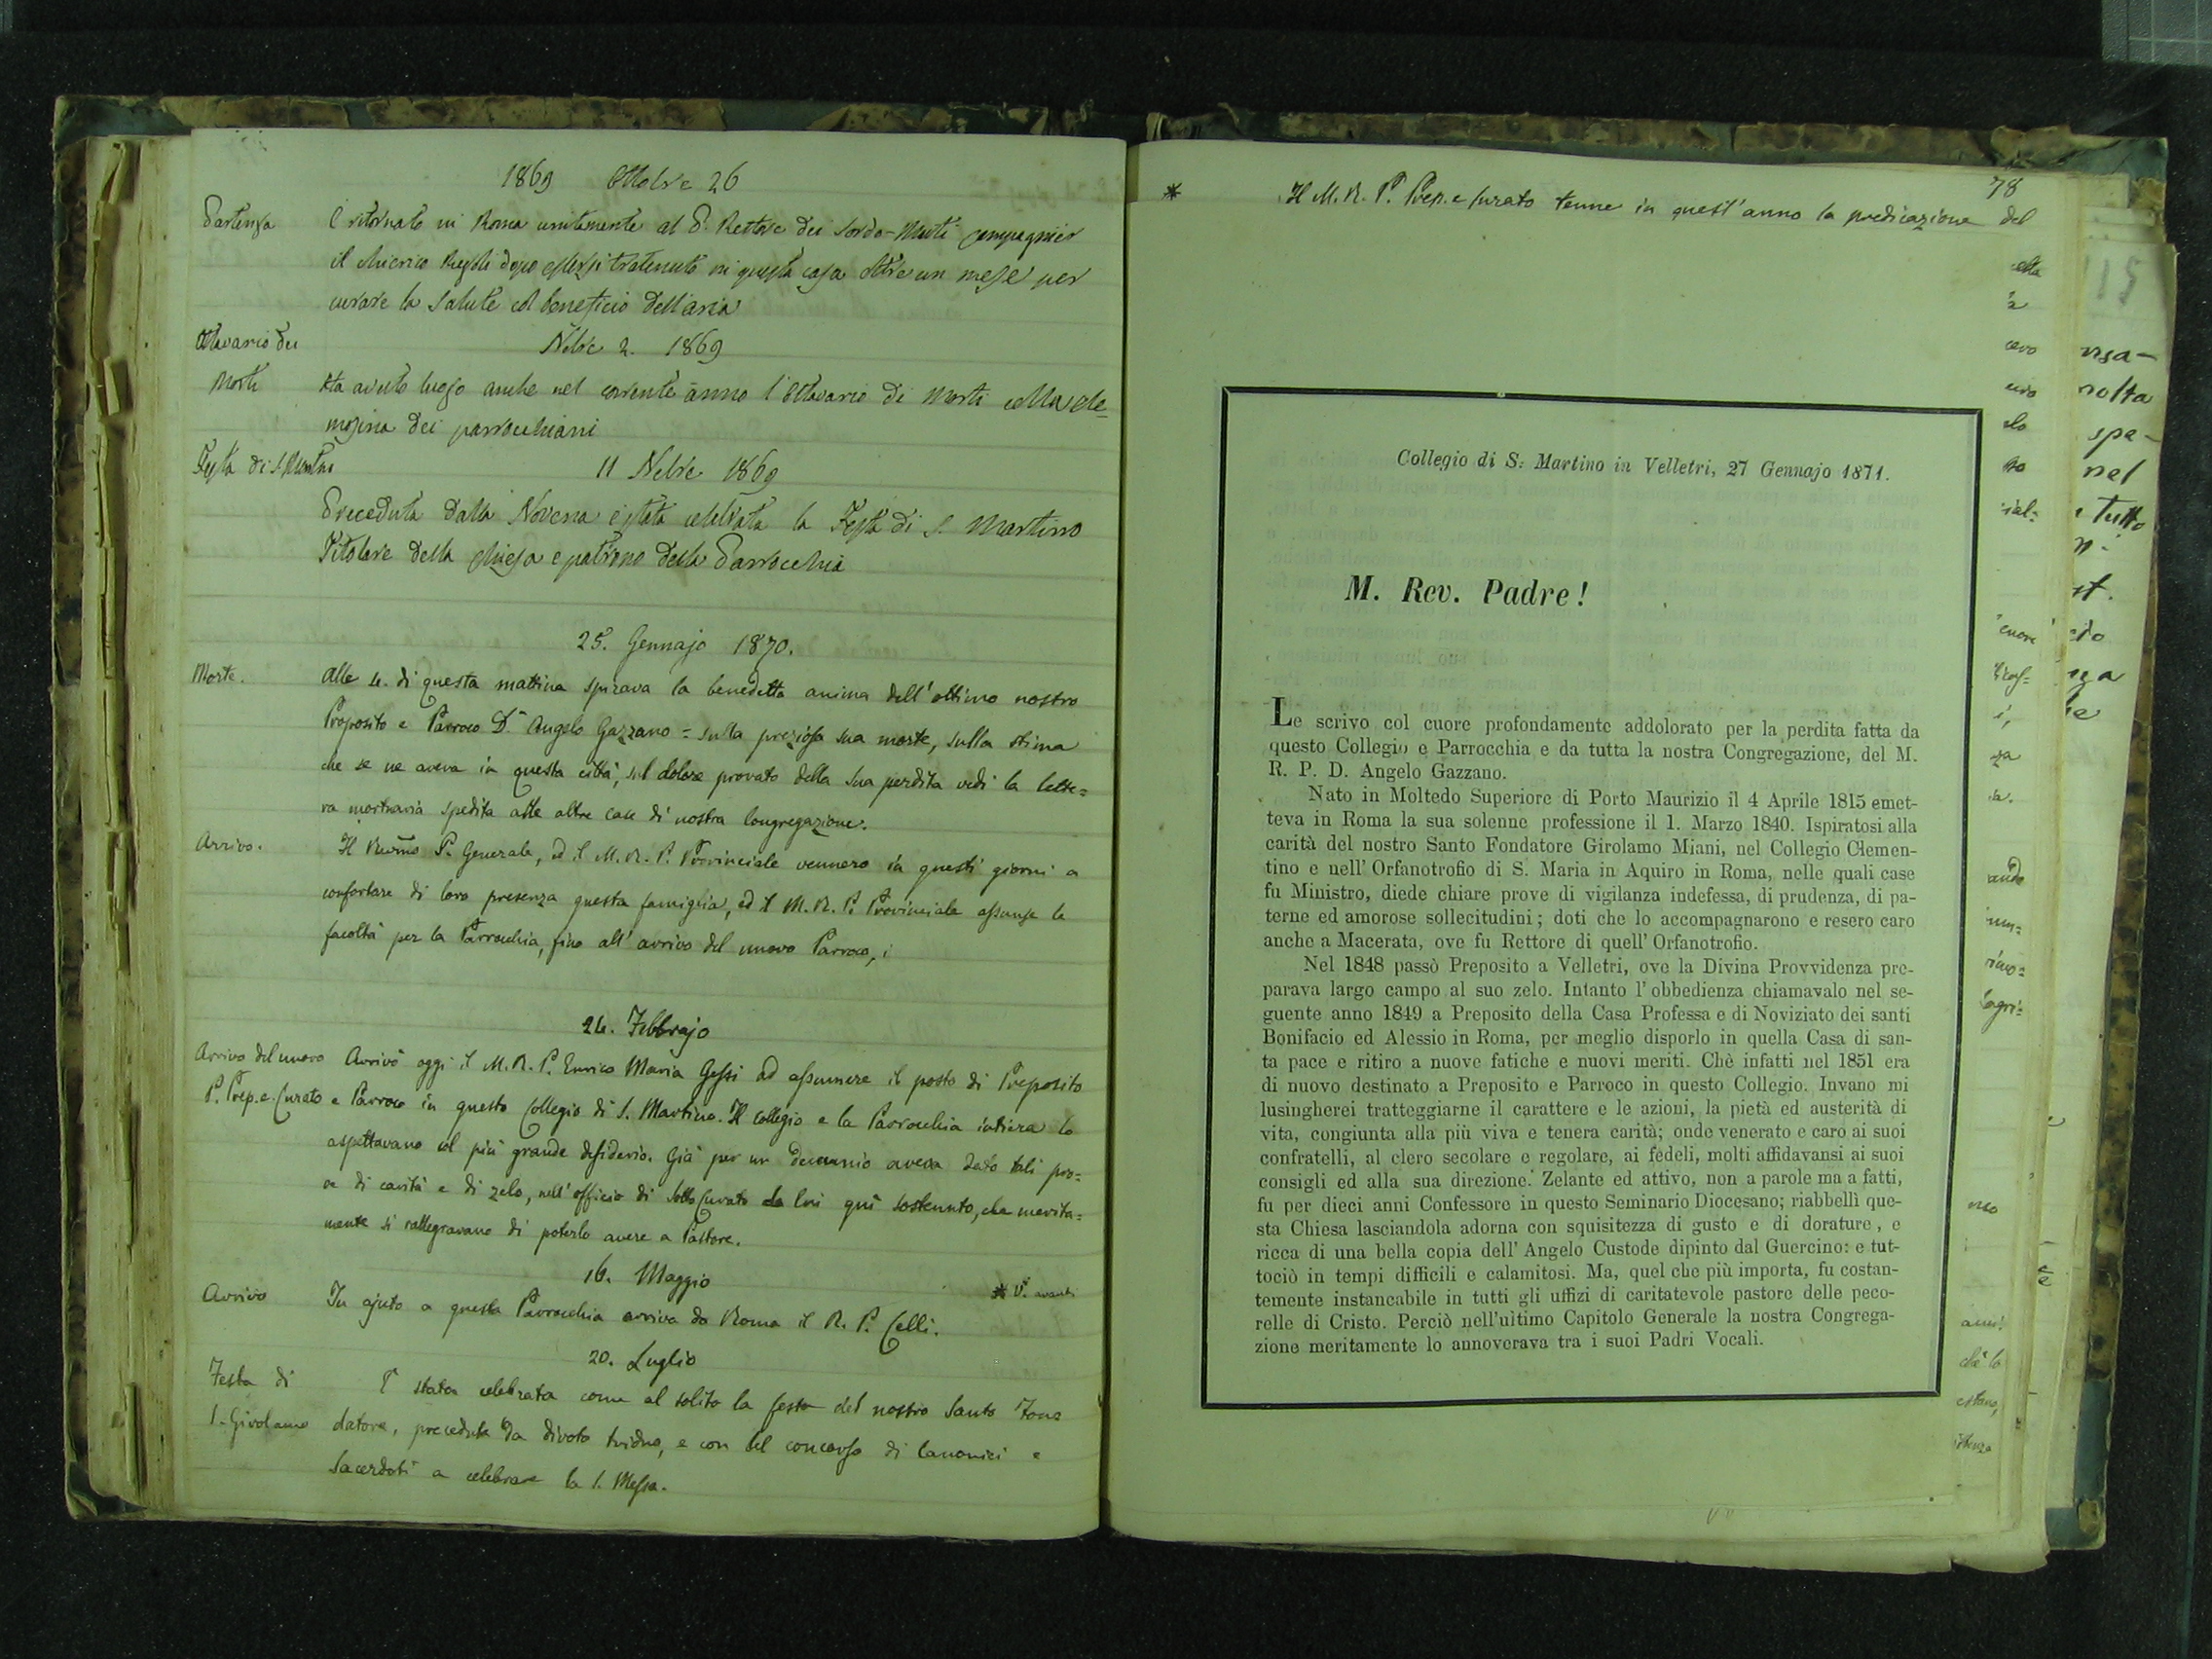 1869 Ottobre 26
Partenza
È ritornato in Roma unitamente al P. Rettore dei Sordo-Muti
il Chierico dopo essersi trattenuto in questa casa oltre un mese per
curare la salute col beneficio dell'aria
Ottavario dei
Morti
Nbre 2. 1869
Ha avuto luogo anche nel corrente anno l'Ottavario di Morti colla ele=
mosina dei parrocchiani
Festa di S. Martino
11 Nbre 1869
Preceduta dalla Novena è stata celebrata la Festa di S. Martino
Titolare della Chiesa e patrono della Parrocchia
25. Gennajo 1870.
Morte.
Alle 4. di questa mattina spirava la benedetta anima dell'ottimo nostro
Proposito e Parroco D. Angelo Gazzano = sulla preziosa sua morte, sulla stima
che se ne aveva in questa città, sul dolore provato della sua perdita vedi la lette=
ra mortuaria spedita alle altre case di nostra Congregazione.
Arrivo.
Il Rev̅mo P. Generale, ed il M. R. P. Provinciale vennero in questi giorni a
confortare di loro presenza questa famiglia, ed il M. R. P. Provinciale assunse le
facoltà per la Parrocchia, fino all'arrivo del nuovo Parroco,
24. Febbrajo
Arrivo del nuovo
P. Prep. e Curato
Arrivò oggi il M. R. P. Enrico Maria Gessi ad assumere il posto di Preposito
e Parroco in questo Collegio di S. Martino. Il Collegio e la Parrocchia intiera lo
aspettavano col più grande desiderio. Già per un decennio aveva dato tali pro=
ve di carità e di zelo, nell'officio di Sotto Curato da lui quì sostenuto, che merita=
mente si rallegravano di poterlo avere a Pastore.
* V. avanti
16. Maggio
Arrivo
In ajuto a questa Parrocchia arriva da Roma il R. P. Celli.
20. Luglio
Festa di
S. Girolamo
È stata celebrata come al solito la festa del nostro Santo Fon
datore, preceduta da divoto triduo, e con bel concorso di Canonici e
Sacerdoti a celebrare la S. Messa.
78
* Il M. R. P. Prep. e Curato tenne in quest'anno la predicazione del
Collegio di S. Martino in Velletri, 27 Gennajo 1871.
M. Rev. Padre!
Le scrivo col cuore profondamente addolorato per la perdita fatta da
questo Collegio e Parrocchia e da tutta la nostra Congregazione, del M.
R. P. D. Angelo Gazzano.
Nato in Moltedo Superiore di Porto Maurizio il 4 Aprile 1815 emet-
teva in Roma la sua solenne professione il 1. Marzo 1840. Ispiratosi alla
carità del nostro Santo Fondatore Girolamo Miani, nel Collegio Clemen-
tino e nell' Orfanotrofio di S. Maria in Aquiro in Roma, nelle quali case
fu Ministro, diede chiare prove di vigilanza indefessa, di prudenza, di pa-
terne ed amorose sollecitudini; doti che lo accompagnarono e resero caro
anche a Macerata, ove fu Rettore di quell' Orfanotrofio.
Nel 1848 passò Preposito a Velletri, ove la Divina Provvidenza pre-
parava largo campo al suo zelo. Intanto l' obbedienza chiamavalo nel se-
guente anno 1849 a Preposito della Casa Professa e di Noviziato dei santi
Bonifacio ed Alessio in Roma, per meglio disporlo in quella Casa di san-
ta pace e ritiro a nuove fatiche e nuovi meriti. Chè infatti nel 1851 era
di nuovo destinato a Preposito e Parroco in questo Collegio. Invano mi
lusingherei tratteggiarne il carattere e le azioni, la pietà ed austerità di
vita, congiunta alla più viva e tenera carità; onde venerato e caro ai suoi
confratelli, al clero secolare e regolare, ai fedeli, molti affidavansi ai suoi
consigli ed alla sua direzione. Zelante ed attivo, non a parole ma a fatti,
fu per dieci anni Confessore in questo Seminario Diocesano; riabbellì que-
sta Chiesa lasciandola adorna con squisitezza di gusto e di dorature, e
ricca di una bella copia dell' Angelo Custode dipinto dal Guercino: e tut-
tociò in tempi difficili e calamitosi. Ma, quel che più importa, fu costan-
temente instancabile in tutti gli uffizi di caritatevole pastore delle peco-
relle di Cristo. Perciò nell'ultimo Capitolo Generale la nostra Congrega-
zione meritamente lo annoverava tra i suoi Padri Vocali.